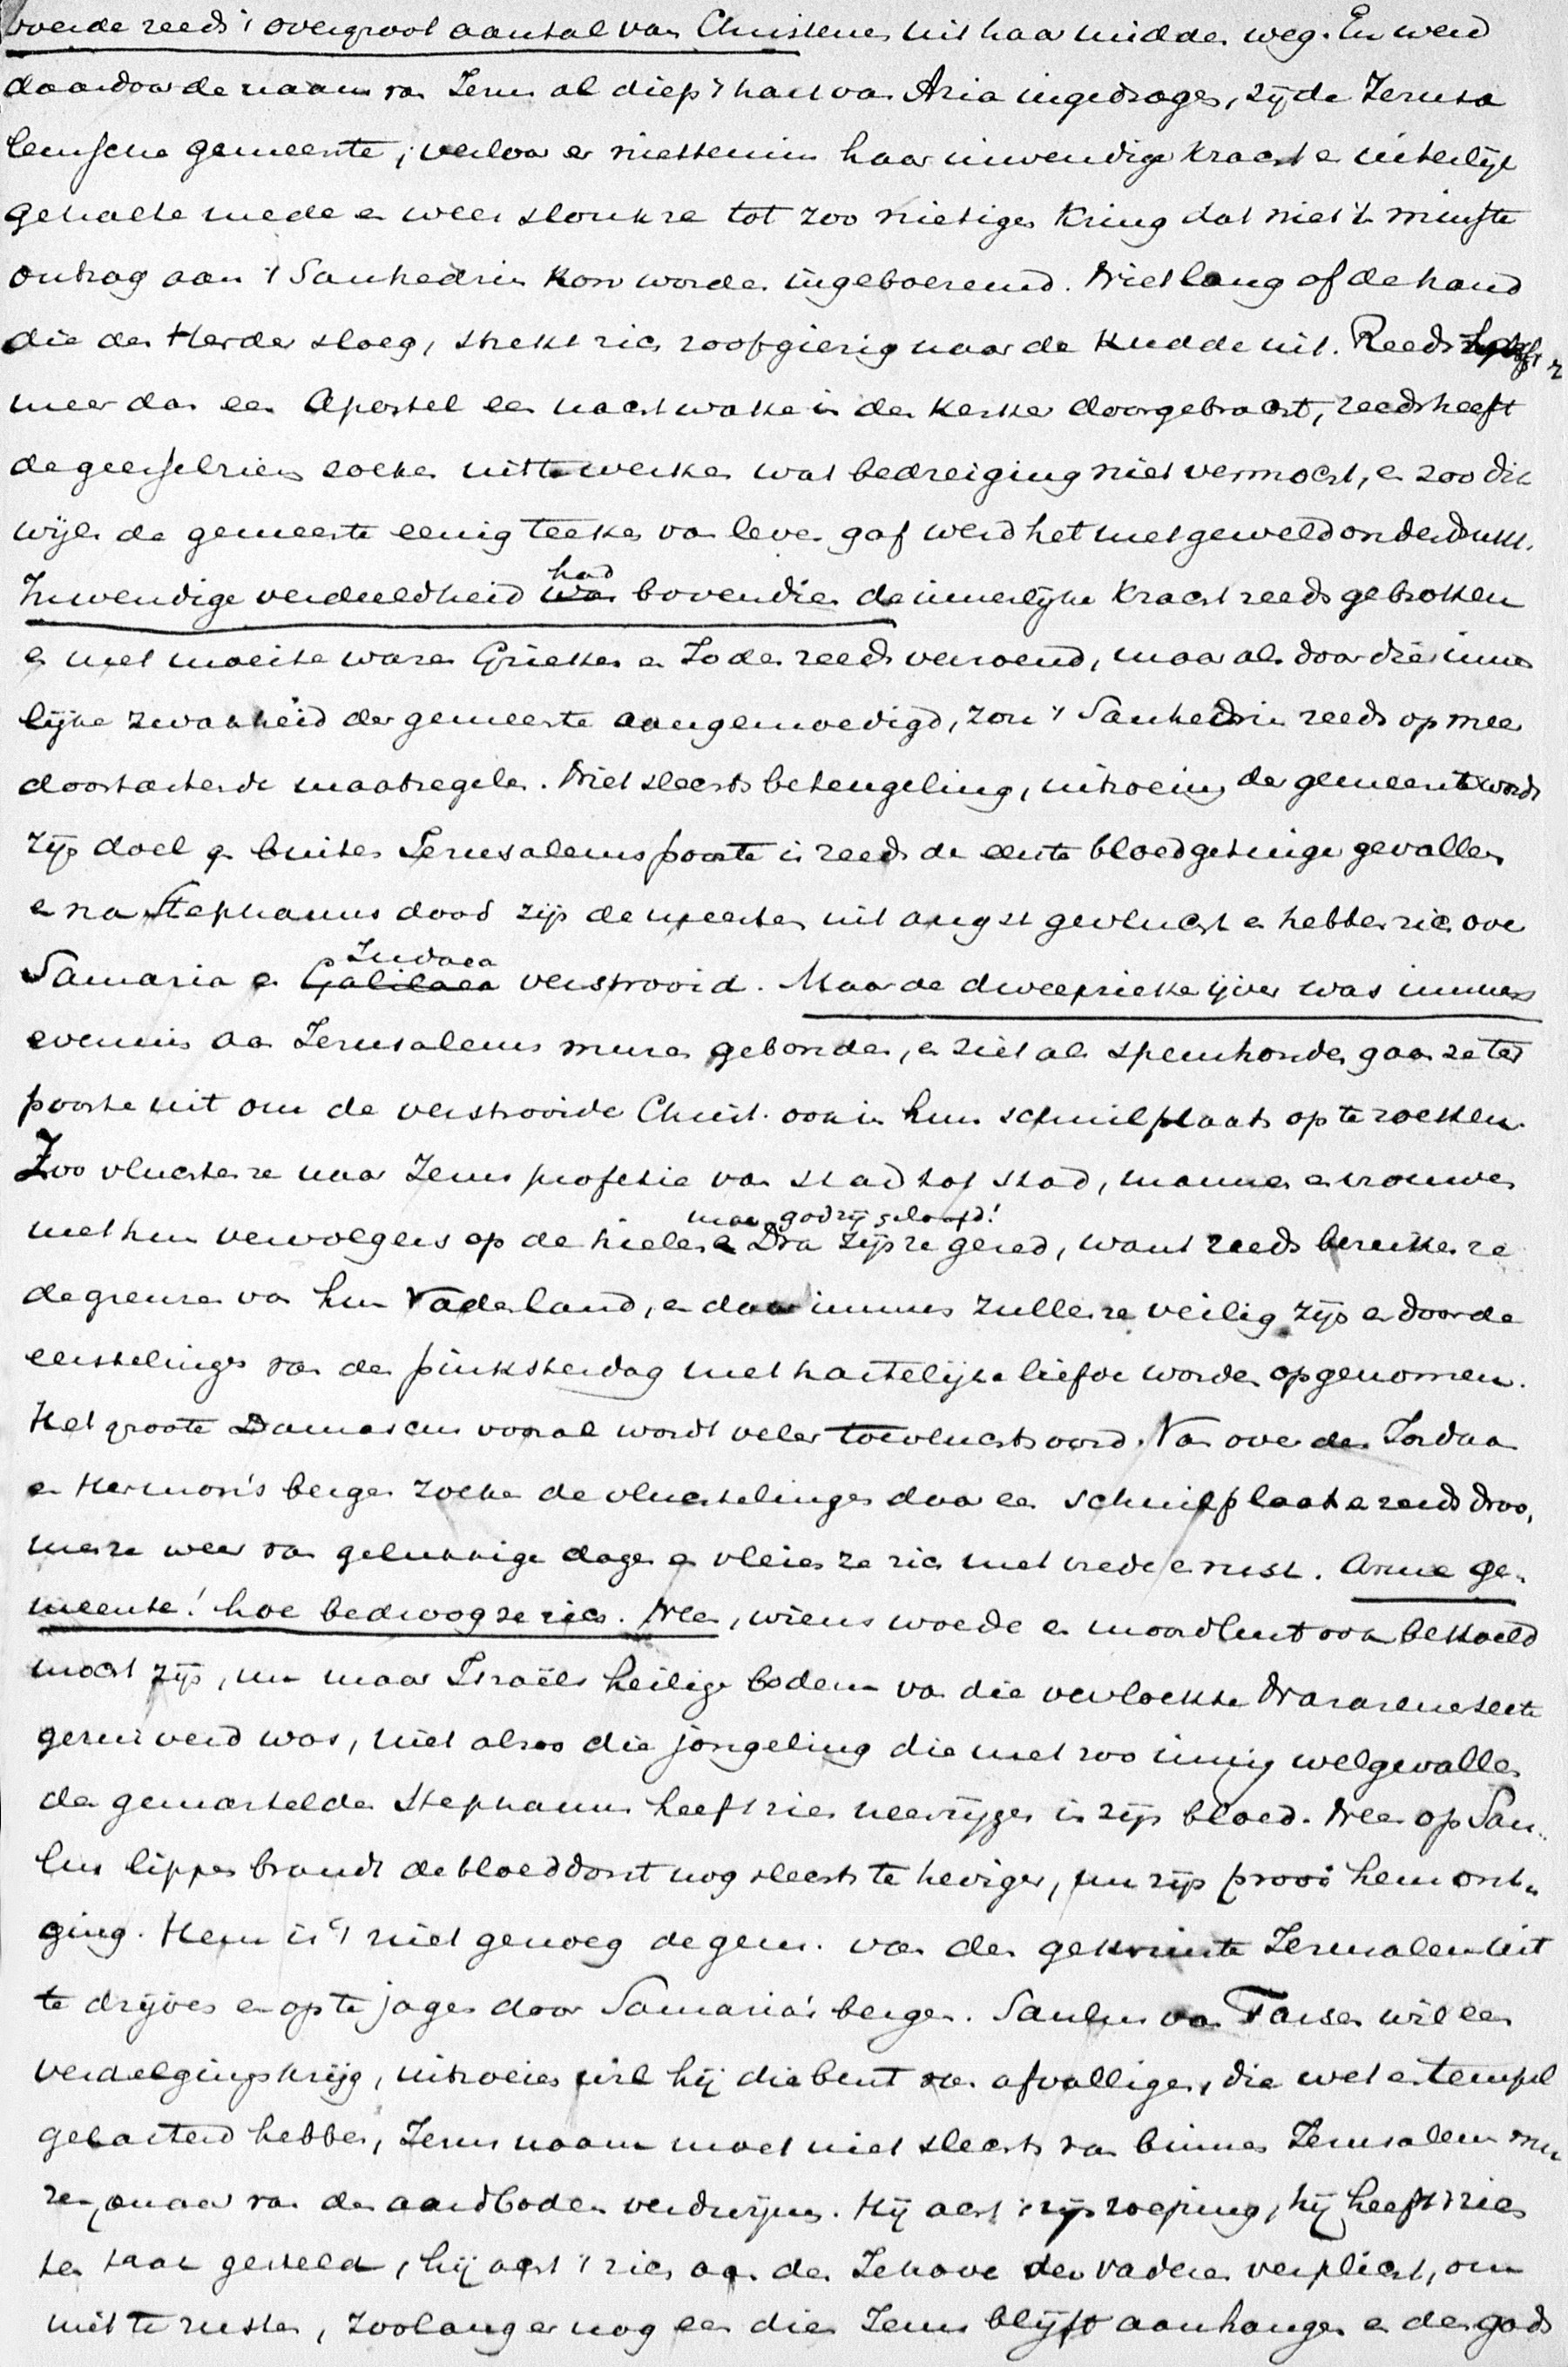 voerde reeds 't overgroot aantal van Christenen uit haar midden weg. En werd
daardoor de naam van Jezus al diep 't hart van Azia ingedragen, zij de Jerusa
lemsche gemeente, verloor er niettemin haar inwendige kracht en uiterlijk
gehalte mede en weer slonk ze tot zoo nietigen kring dat niet 't minste
ontzag aan 't Sanhedrin kon worden ingeboezemd. Niet lang of de hand
die den Herder sloeg, strekt zich roofgierig naar de kudde uit. Reeds
meer dan een Apostel een nachtwake in den kerker doorgebracht, reeds heeft
de geeselriem zoeken uit te werken wat bedreiging niet vermocht, en zoo dik
wijls de gemeente eenig teeken van leven gaf werd het met geweld onderdrukt.
Inwendige verdeeldheid had bovendien de innerlijke kracht reeds gebroken
en met moeite waren Grieken en Joden reeds verzoend, maar als door die inner
lijke zwakheid der gemeente aangemoedigd, zon 't Sanhedrin reeds op meer
doortastende maatregelen. Niet slechts beteugeling, uitroeiing der gemeente wordt
zijn doel en buiten Jerusalems poorte is reeds de eerste bloedgetuige gevallen
en na Stephanus dood zijn de meesten uit angst gevlucht en hebben zich over
Samaria en Judaea verstrooid. Maar de dweepzieke ijver was immers
evenmin aan Jerusalems muren gebonden, en ziet als speurhonden gaan ze ter
poorte uit om de verstrooide Christ. ook in hun schuilplaats op te zoeken.
Zoo vluchten ze naar Jezus profetie van stad tot stad, mannen en vrouwen
met hun vervolgers op de hielen maar god zij geloofd! Dra zijn ze gered, want reeds bereiken ze
de grenzen van hun Vaderland, en daar immers zullen ze veilig zijn en door de
eerstelingen van den pinksterdag met hartelijke liefde worden opgenomen.
Het groote Damascus vooral wordt veler toevluchtsoord. Van over den Jordaan
en Hermon's bergen zoeken de vluchtelingen daar een schuilplaats en reeds droo,
men ze weer van gelukkige dagen en vleien ze zich met vrede en rust. Arme ge-
meente! hoe bedroog ze zich. Neen, wiens woede en moordlust ook bekoeld
mocht zijn, nu maar Israëls heilige bodem van die vervloekte Nazarenesecte
gezuiverd was, niet alzoo die jongeling die met zoo innig welgevallen
den gemartelden Stephanus heeft zien neerzijgen in zijn bloed. Neen op Sau-
lus lippen brandt de bloeddorst nog slechts te heviger, nu zijn prooi hem ont-
ging. Hem is 't niet genoeg de gem. van den gekruiste Jerusalem uit
te drijven en op te jagen door Samaria's bergen. Saulus van Tarsen wil een
verdelgingskrijg, uitroeien wil hij die bent van afvalligen, die wet en tempel
gelasterd hebben, Jezus naam moet niet slechts van binnen Jerusalem mu
ren, maar van den aardbodem verdwijnen. Hij acht 't zijn roeping, hij heeft 't zich
ten taak gesteld, hij acht 't zich aan den Jehova der vaderen verplicht, om
niet te rusten, zoolang er nog een dien Jezus blijft aanhangen en den gods